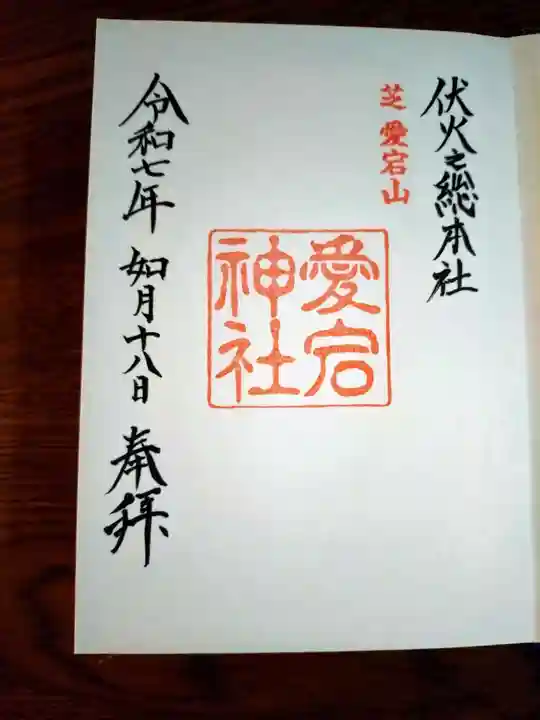 伏火之総本社
芝 愛宕山
愛宕
神社
令和七年 如月十八日 奉拝